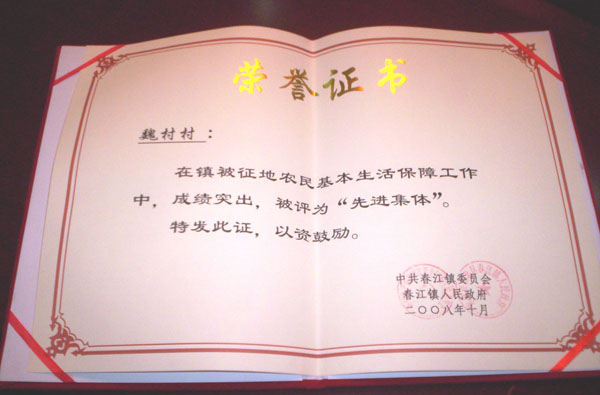 荣誉证书
魏村村：
在镇被征地农民基本生活保障工作
中，成绩突出，被评为“先进集体”。
特发此证，以资鼓励。
中共春江镇委员会
春江镇人民政府
二〇〇八年十月